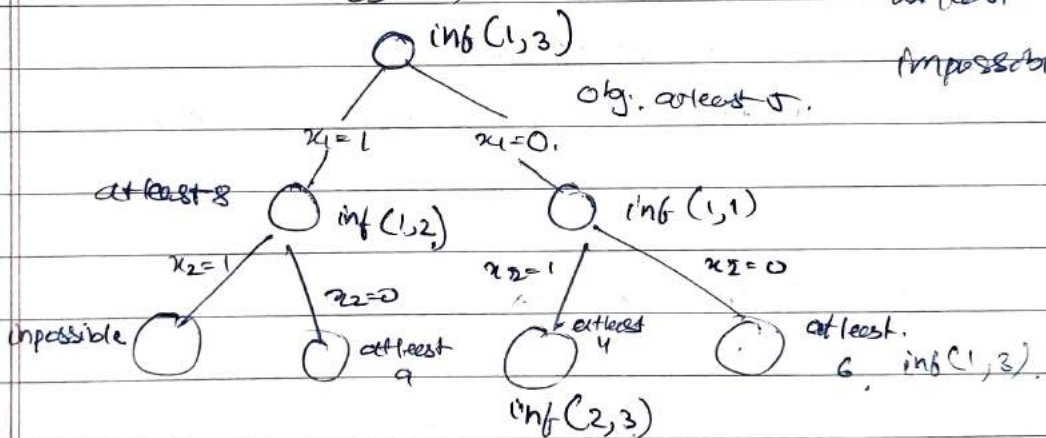 inf (1,3)
Impossib
obj. atleast 5.
x1 = 1
x1 = 0.
atleast 8
inf (1,2)
inf (1,1)
x2 = 1
x2 = 0
x2 = 1
x2 = 0
impossible
atleast
9
atleast
4
atleast.
6. inf (1,3).
inf (2,3)